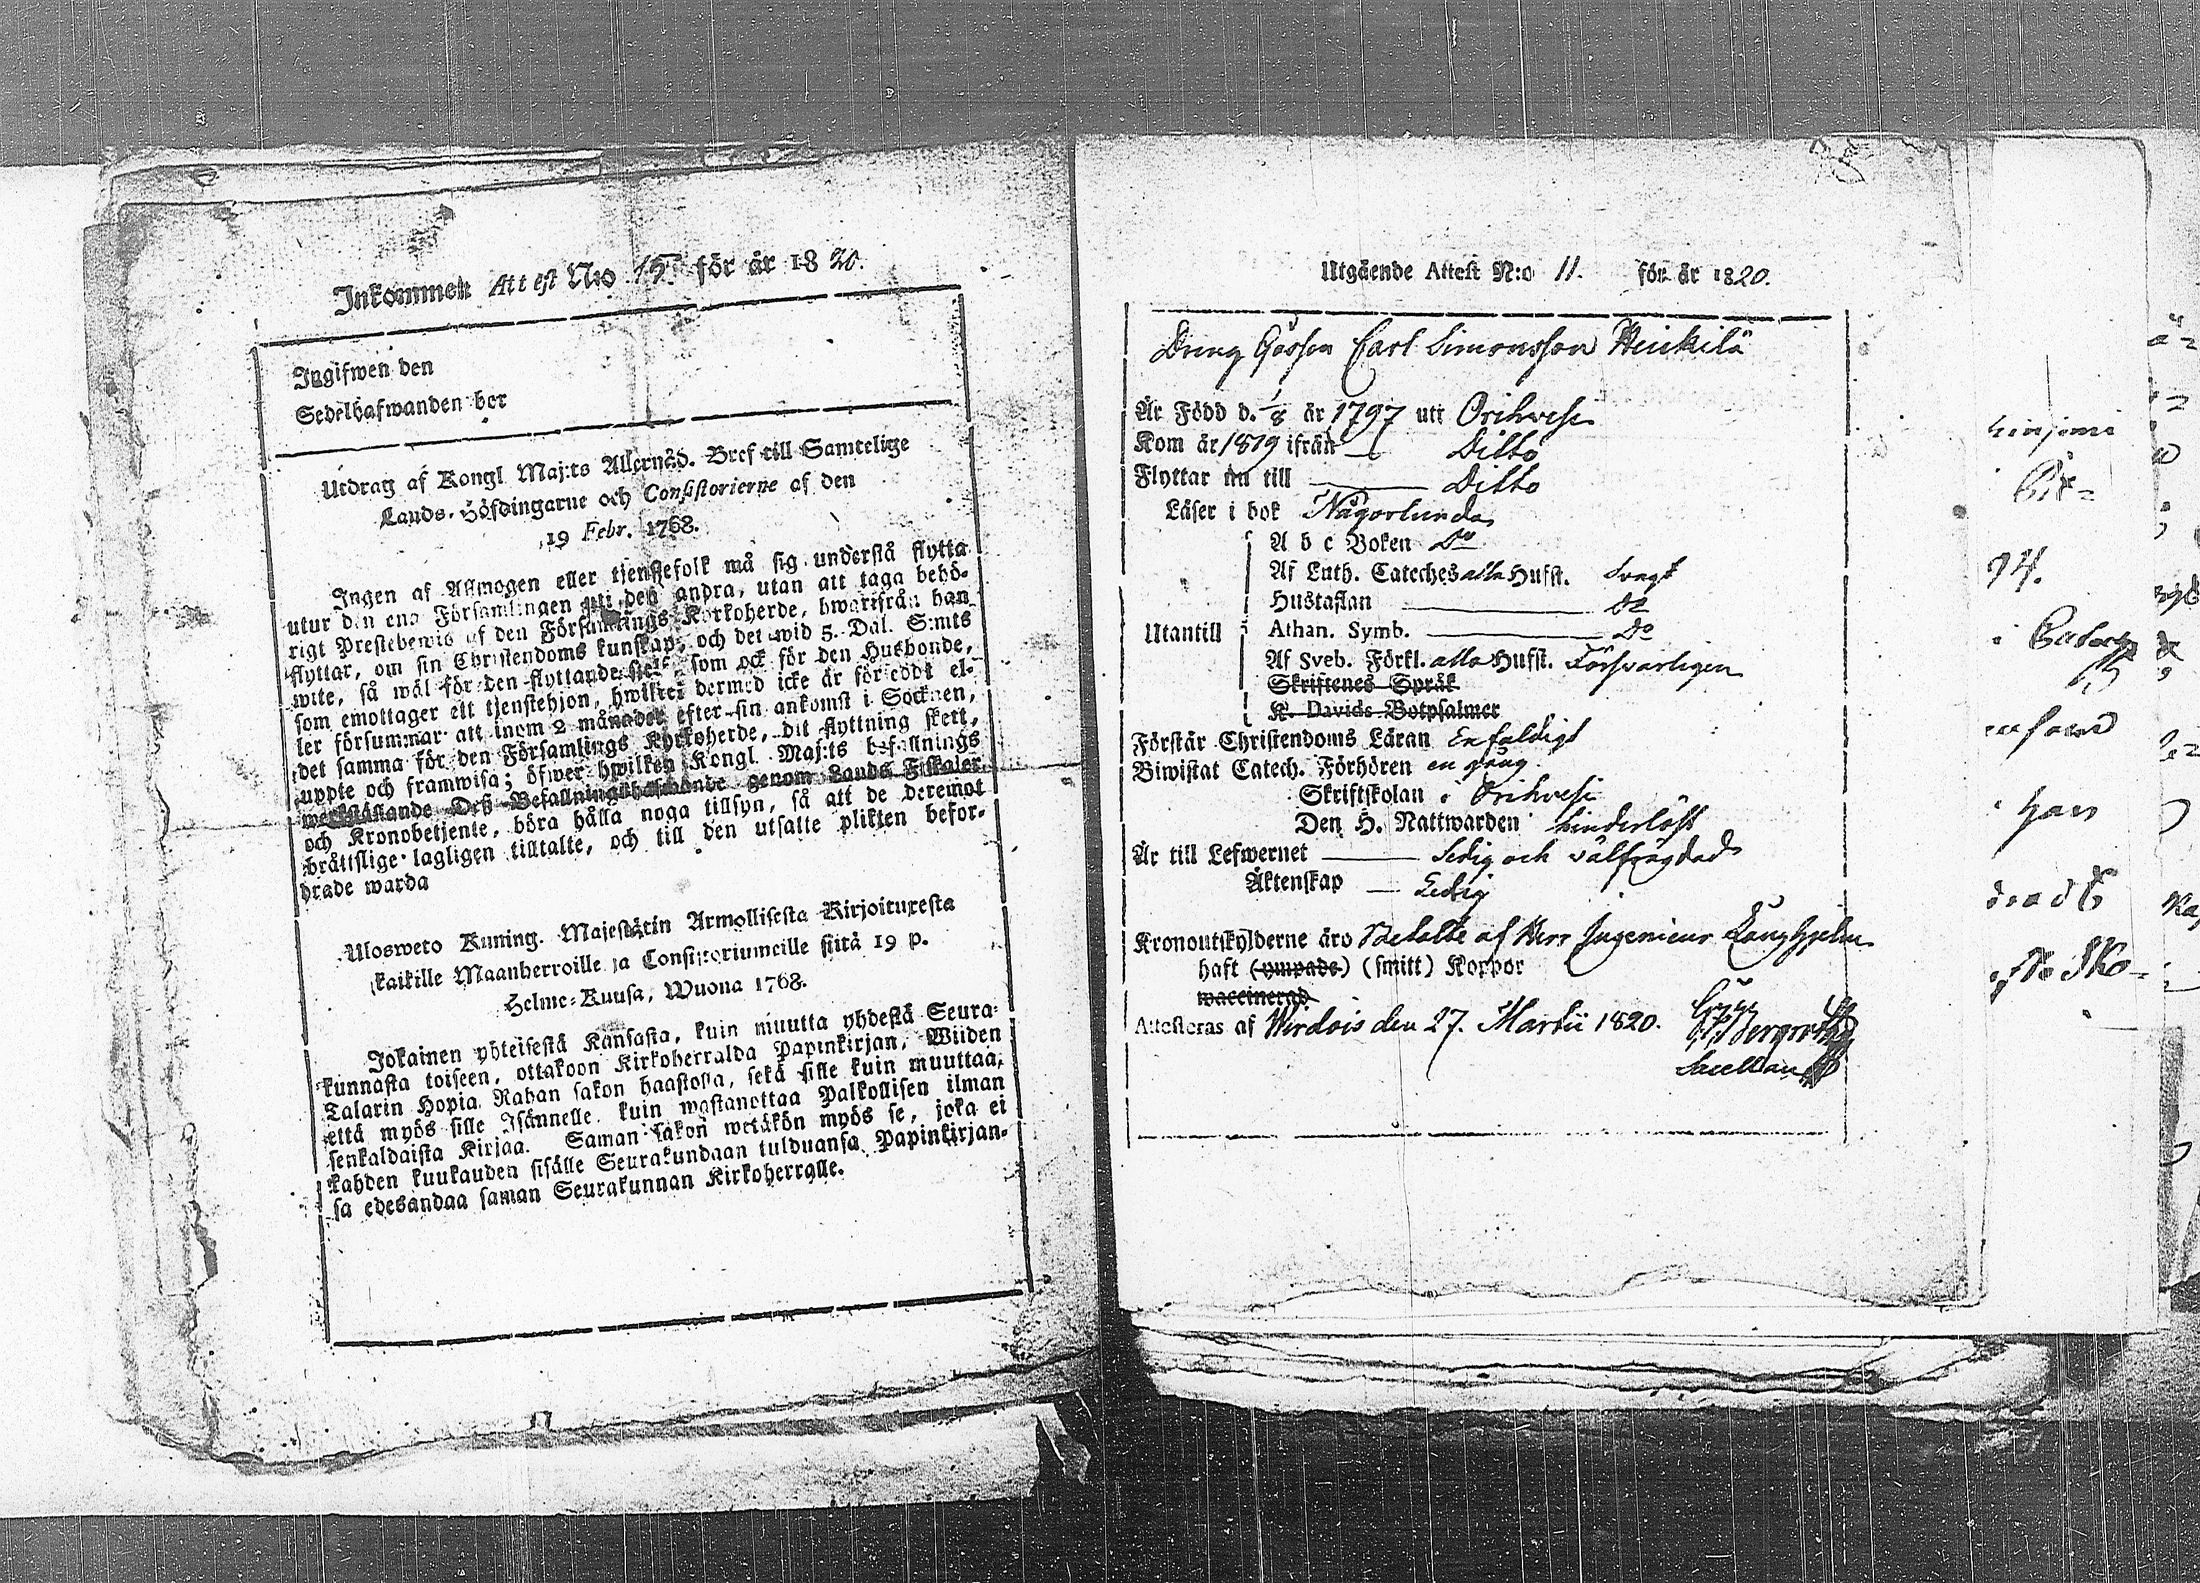 Inkommen Attest N:o 15 för år 1820.
Ingifwen den
Sedelhafwanden bor
Utdrag af Kongl Maj:ts Allernåd. Bref till Samtelige
Lands-Höfdingarne och Consistorierne af den
19 Febr. 1768.
Ingen af Allmogen eller tjenstefolk må sig understå flytta
utur den ena Församlingen uti den andra, utan att taga behö-
rigt Prestebewis af den Församlings Kyrkoherde, hwarifrån han
flyttar, om sin Christendoms kunskap, och det wid 5. Dal. S:mts
wite, så wäl för den flyttande sielf, som ock för den Husbonde,
som emottager ett tjenstehjon, hwilket dermed icke är försedt el-
ler försummar att inom 2 månader efter sin ankomst i Socknen,
det samma för den Församlings Kyrkoherde, dit flyttning skett,
uppte och framwisa; öfwer hwilken Kongl. Maj:ts befallnings
werkställande Deß Befallningshafwande genom Lands Fiskaler
och Kronobetjente, böra hålla noga tillsyn, så att de deremot
bråttslige lagligen tilltalte, och till den utsatte plikten befor-
drade warda
Ulosweto Kuning. Majestätin Armollisesta Kirjoituxesta
kaikille Maanherroille ja Consistoriumeille siitä 19 p.
Helme-Kuusa, Wuona 1768.
Jokainen yhteisestä Kansasta, kuin muutta yhdestä Seura-
kunnasta toiseen, ottakoon Kirkoherralda Papinkirjan, Wiiden
Talarin Hopia Rahan sakon haastolla, sekä sille kuin muuttaa,
että myös sille Isännelle, kuin wastanottaa Palkollisen ilman
senkaldaista Kirjaa. Saman sakon wetäkön myös se, joka ei
kahden kuukauden sisälle Seurakundaan tulduansa Papinkirjan-
sa edesandaa saman Seurakunnan Kirkoherralle.
Utgående Attest N:o 11. för år 1820.
Dreng Gossen Carl Simonsson Heickilä
Är Född d. 1/8 år 1797 uti Orihvesi
Kom år 1819 ifrån — Ditto
Flyttar nu till — Ditto
Läser i bok Någorlunda
A b c Boken Do
Af Luth. Cateches alla Hufst. Svagt
Hustaflan — Do
Utantill Athan. Symb. — Do
Af Sveb. Förkl. alla Hufst. Försvarligen
Skriftenes Språk
K. Davids Botpsalmer
Förstår Christendoms Läran Enfaldigt
Biwistat Catech. Förhören en gång
Skriftskolan i Orihvesi
Den H. Nattwarden hinderlöst
Är till Lefwernet — Sedig och välfrägdad
Äktenskap — Ledig
Kronoutskylderne äro Betalte af Herr Ingenieur Långhjelm
haft (ympade) (smitt) Koppor
waccinerad
Attesteras af Wirdois den 27. Martii 1820.
Bergroth
Sacellan